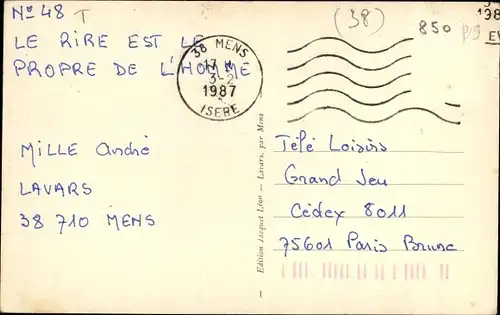 N° 48 T
LE RIRE EST LE
PROPRE DE L'HOMME
MILLE André
LAVARS
38 710 MENS
38 MENS
17 H
3-2
1987
ISERE
(38)
850
Edition Jacquet Léon — Lavars, par Mens
Télé Loisirs
Grand Jeu
Cédex 8011
75601 Paris Brune